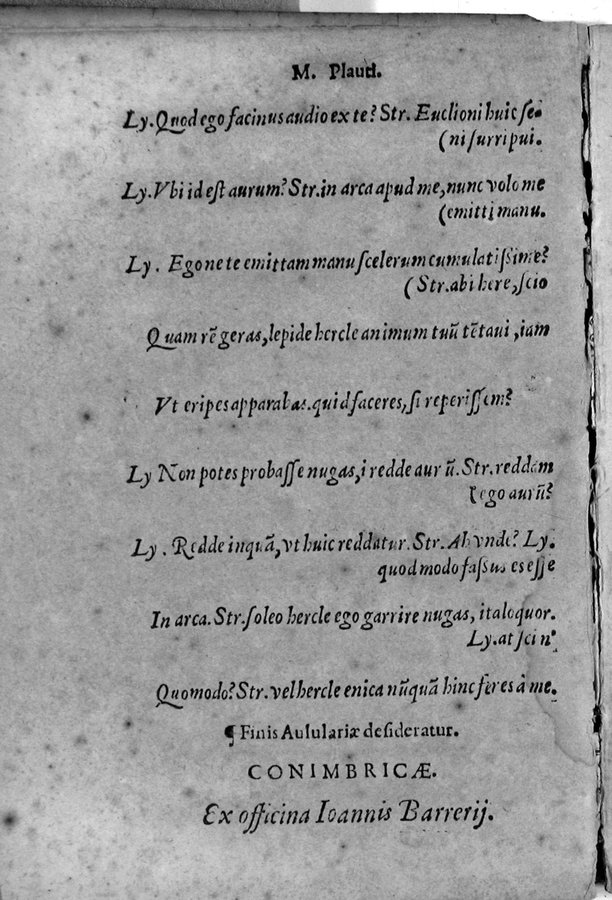 M. Plauti.
Ly. Quod ego facinus audio ex te? Str. Euclioni huic se-
(ni surripui.
Ly. Vbi id est aurum? Str. in arca apud me, nunc volo me
(emitti manu.
Ly. Egone te emittam manu scelerum cumulatissime?
(Str. abi here, scio
Quam rē geras, lepide hercle animum tuū tētaui, iam
Vt eripes apparabas. quid faceres, si reperissem?
Ly Non potes probasse nugas, i redde aurū. Str. reddam
[ego aurū?
Ly. Redde inquā, vt huic reddatur. Str. Ah vnde? Ly.
quod modo fassus es esse
In arca. Str. soleo hercle ego garrire nugas, ita loquor.
Ly. at scin'
Quomodo? Str. vel hercle enica nūquā hinc feres à me.
¶ Finis Aululariæ desideratur.
CONIMBRICÆ.
Ex officina Ioannis Barrerij.